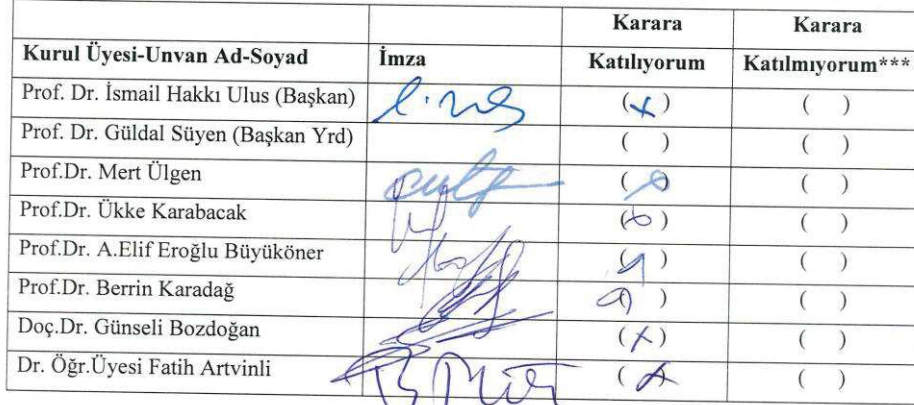 Karara Karara
Kurul Üyesi-Unvan Ad-Soyad İmza Katılıyorum Katılmıyorum***
Prof. Dr. İsmail Hakkı Ulus (Başkan) ( ) ( )
Prof. Dr. Güldal Süyen (Başkan Yrd) ( ) ( )
Prof.Dr. Mert Ülgen ( ) ( )
Prof.Dr. Ükke Karabacak ( ) ( )
Prof.Dr. A.Elif Eroğlu Büyüköner ( ) ( )
Prof.Dr. Berrin Karadağ ( ) ( )
Doç.Dr. Günseli Bozdoğan ( ) ( )
Dr. Öğr.Üyesi Fatih Artvinli ( ) ( )